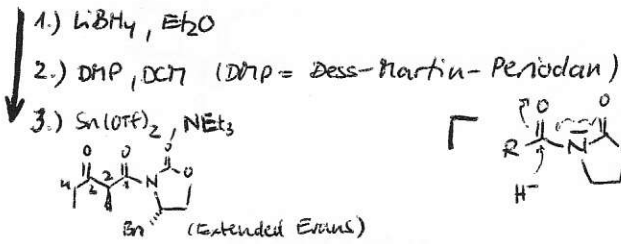 1.) LiBH4, Et2O
2.) DMP, DCM (DMP = Dess-Martin-Periodan)
3.) Sn(OTf)2, NEt3
O O O
4 3 2 1 N O
Bn (Extended Evans)
O O
R N
H⁻